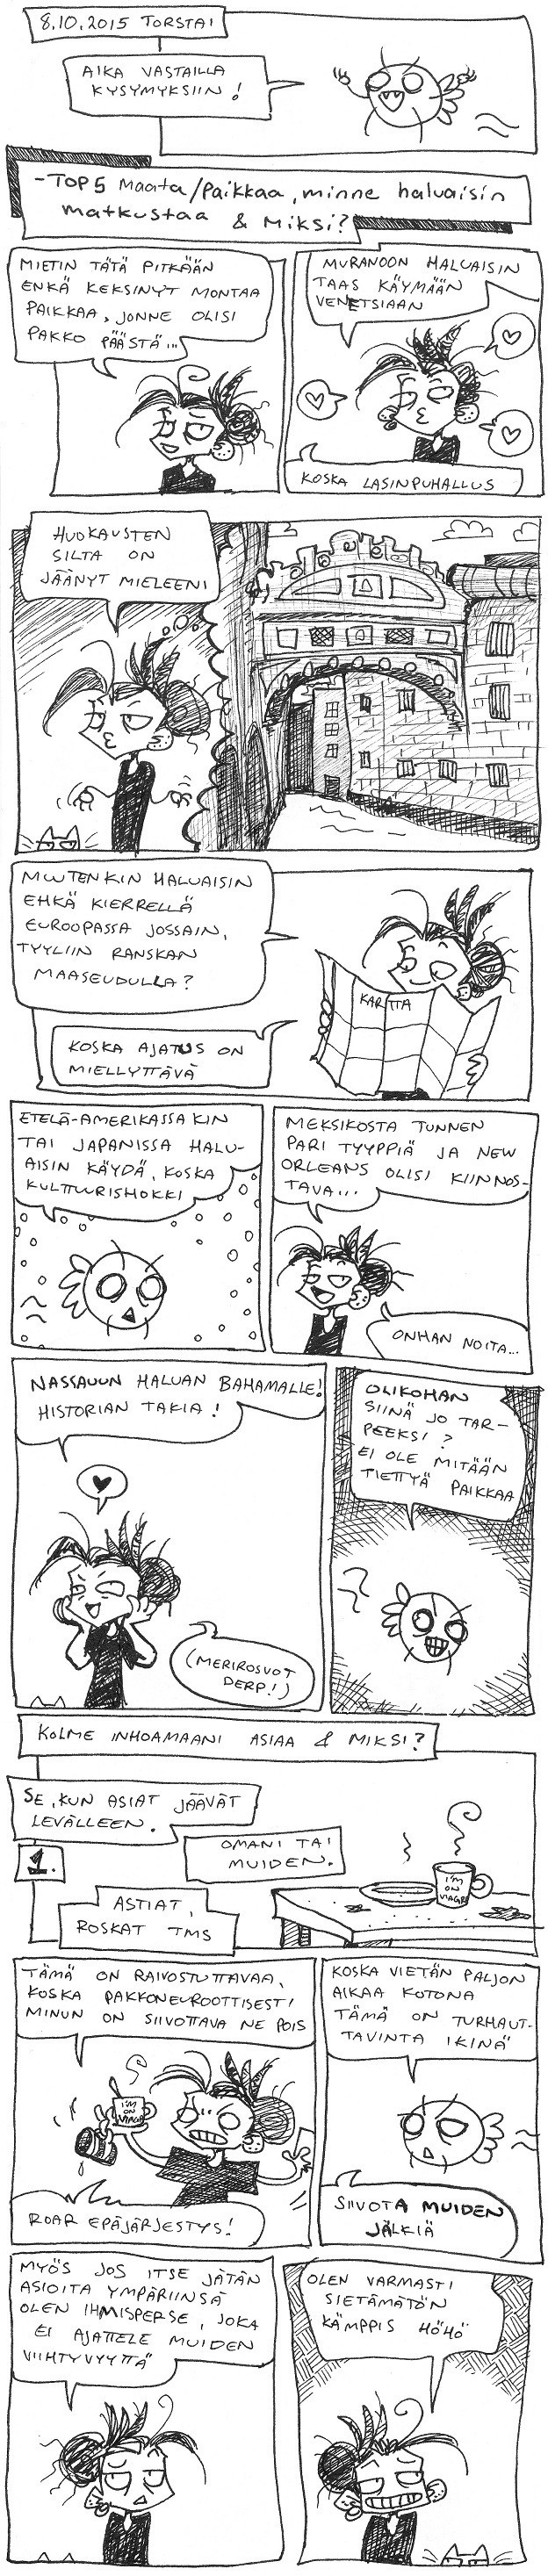 8.10.2015 TORSTAI
AIKA VASTAILLA
KYSYMYKSIIN!
-TOP 5 Maata/Paikkaa, minne haluaisin
matkustaa & Miksi?
MIETIN TÄTÄ PITKÄÄN
ENKÄ KEKSINYT MONTAA
PAIKKAA, JONNE OLISI
PAKKO PÄÄSTÄ...
MURANOON HALUAISIN
TAAS KÄYMÄÄN
VENETSIAAN
KOSKA LASINPUHALLUS
HUOKAUSTEN
SILTA ON
JÄÄNYT MIELEENI
MUUTENKIN HALUAISIN
EHKÄ KIERRELLÄ
EUROOPASSA JOSSAIN,
TYYLIIN RANSKAN
MAASEUDULLA?
KARTTA
KOSKA AJATUS ON
MIELLYTTÄVÄ
ETELÄ-AMERIKASSAKIN
TAI JAPANISSA HALU-
AISIN KÄYDÄ, KOSKA
KULTTUURISHOKKI
MEKSIKOSTA TUNNEN
PARI TYYPPIÄ JA NEW
ORLEANS OLISI KIINNOS-
TAVA...
ONHAN NOITA...
NASSAUUN HALUAN BAHAMALLE!
HISTORIAN TAKIA!
(MERIROSVOT
DERP!)
OLIKOHAN
SIINÄ JO TAR-
PEEKSI?
EI OLE MITÄÄN
TIETTYÄ PAIKKAA
KOLME INHOAMAANI ASIAA & MIKSI?
SE, KUN ASIAT JÄÄVÄT
LEVÄLLEEN.
1.
OMANI TAI
MUIDEN.
ASTIAT,
ROSKAT TMS
I'M
ON
VIAGRA
TÄMÄ ON RAIVOSTUTTAVAA,
KOSKA PAKKONEUROOTTISESTI
MINUN ON SIIVOTTAVA NE POIS
I'M
ON
VIAGRA
ROAR EPÄJÄRJESTYS!
KOSKA VIETÄN PALJON
AIKAA KOTONA
TÄMÄ ON TURHAUT-
TAVINTA IKINÄ
SIIVOTA MUIDEN
JÄLKIÄ
MYÖS JOS ITSE JÄTÄN
ASIOITA YMPÄRIINSÄ
OLEN IHMISPERSE, JOKA
EI AJATTELE MUIDEN
VIIHTYVYYTTÄ
OLEN VARMASTI
SIETÄMÄTÖN
KÄMPPIS HÖHÖ